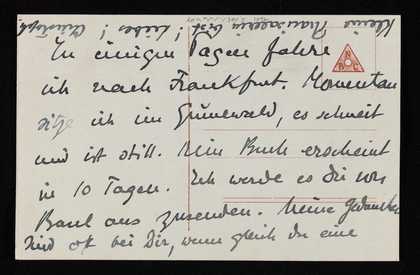 In einigen Tagen fahre
ich nach Frankfurt. Momentan
sitze ich im Grunewald, es schneit
und ist still. Mein Buch erscheint
in 10 Tagen. Ich werde es Dir von
Basel aus zusenden. Meine Gedanken
sind oft bei Dir, wenn gleich Du eine
Kleine
erst! Liebes!
N
B C